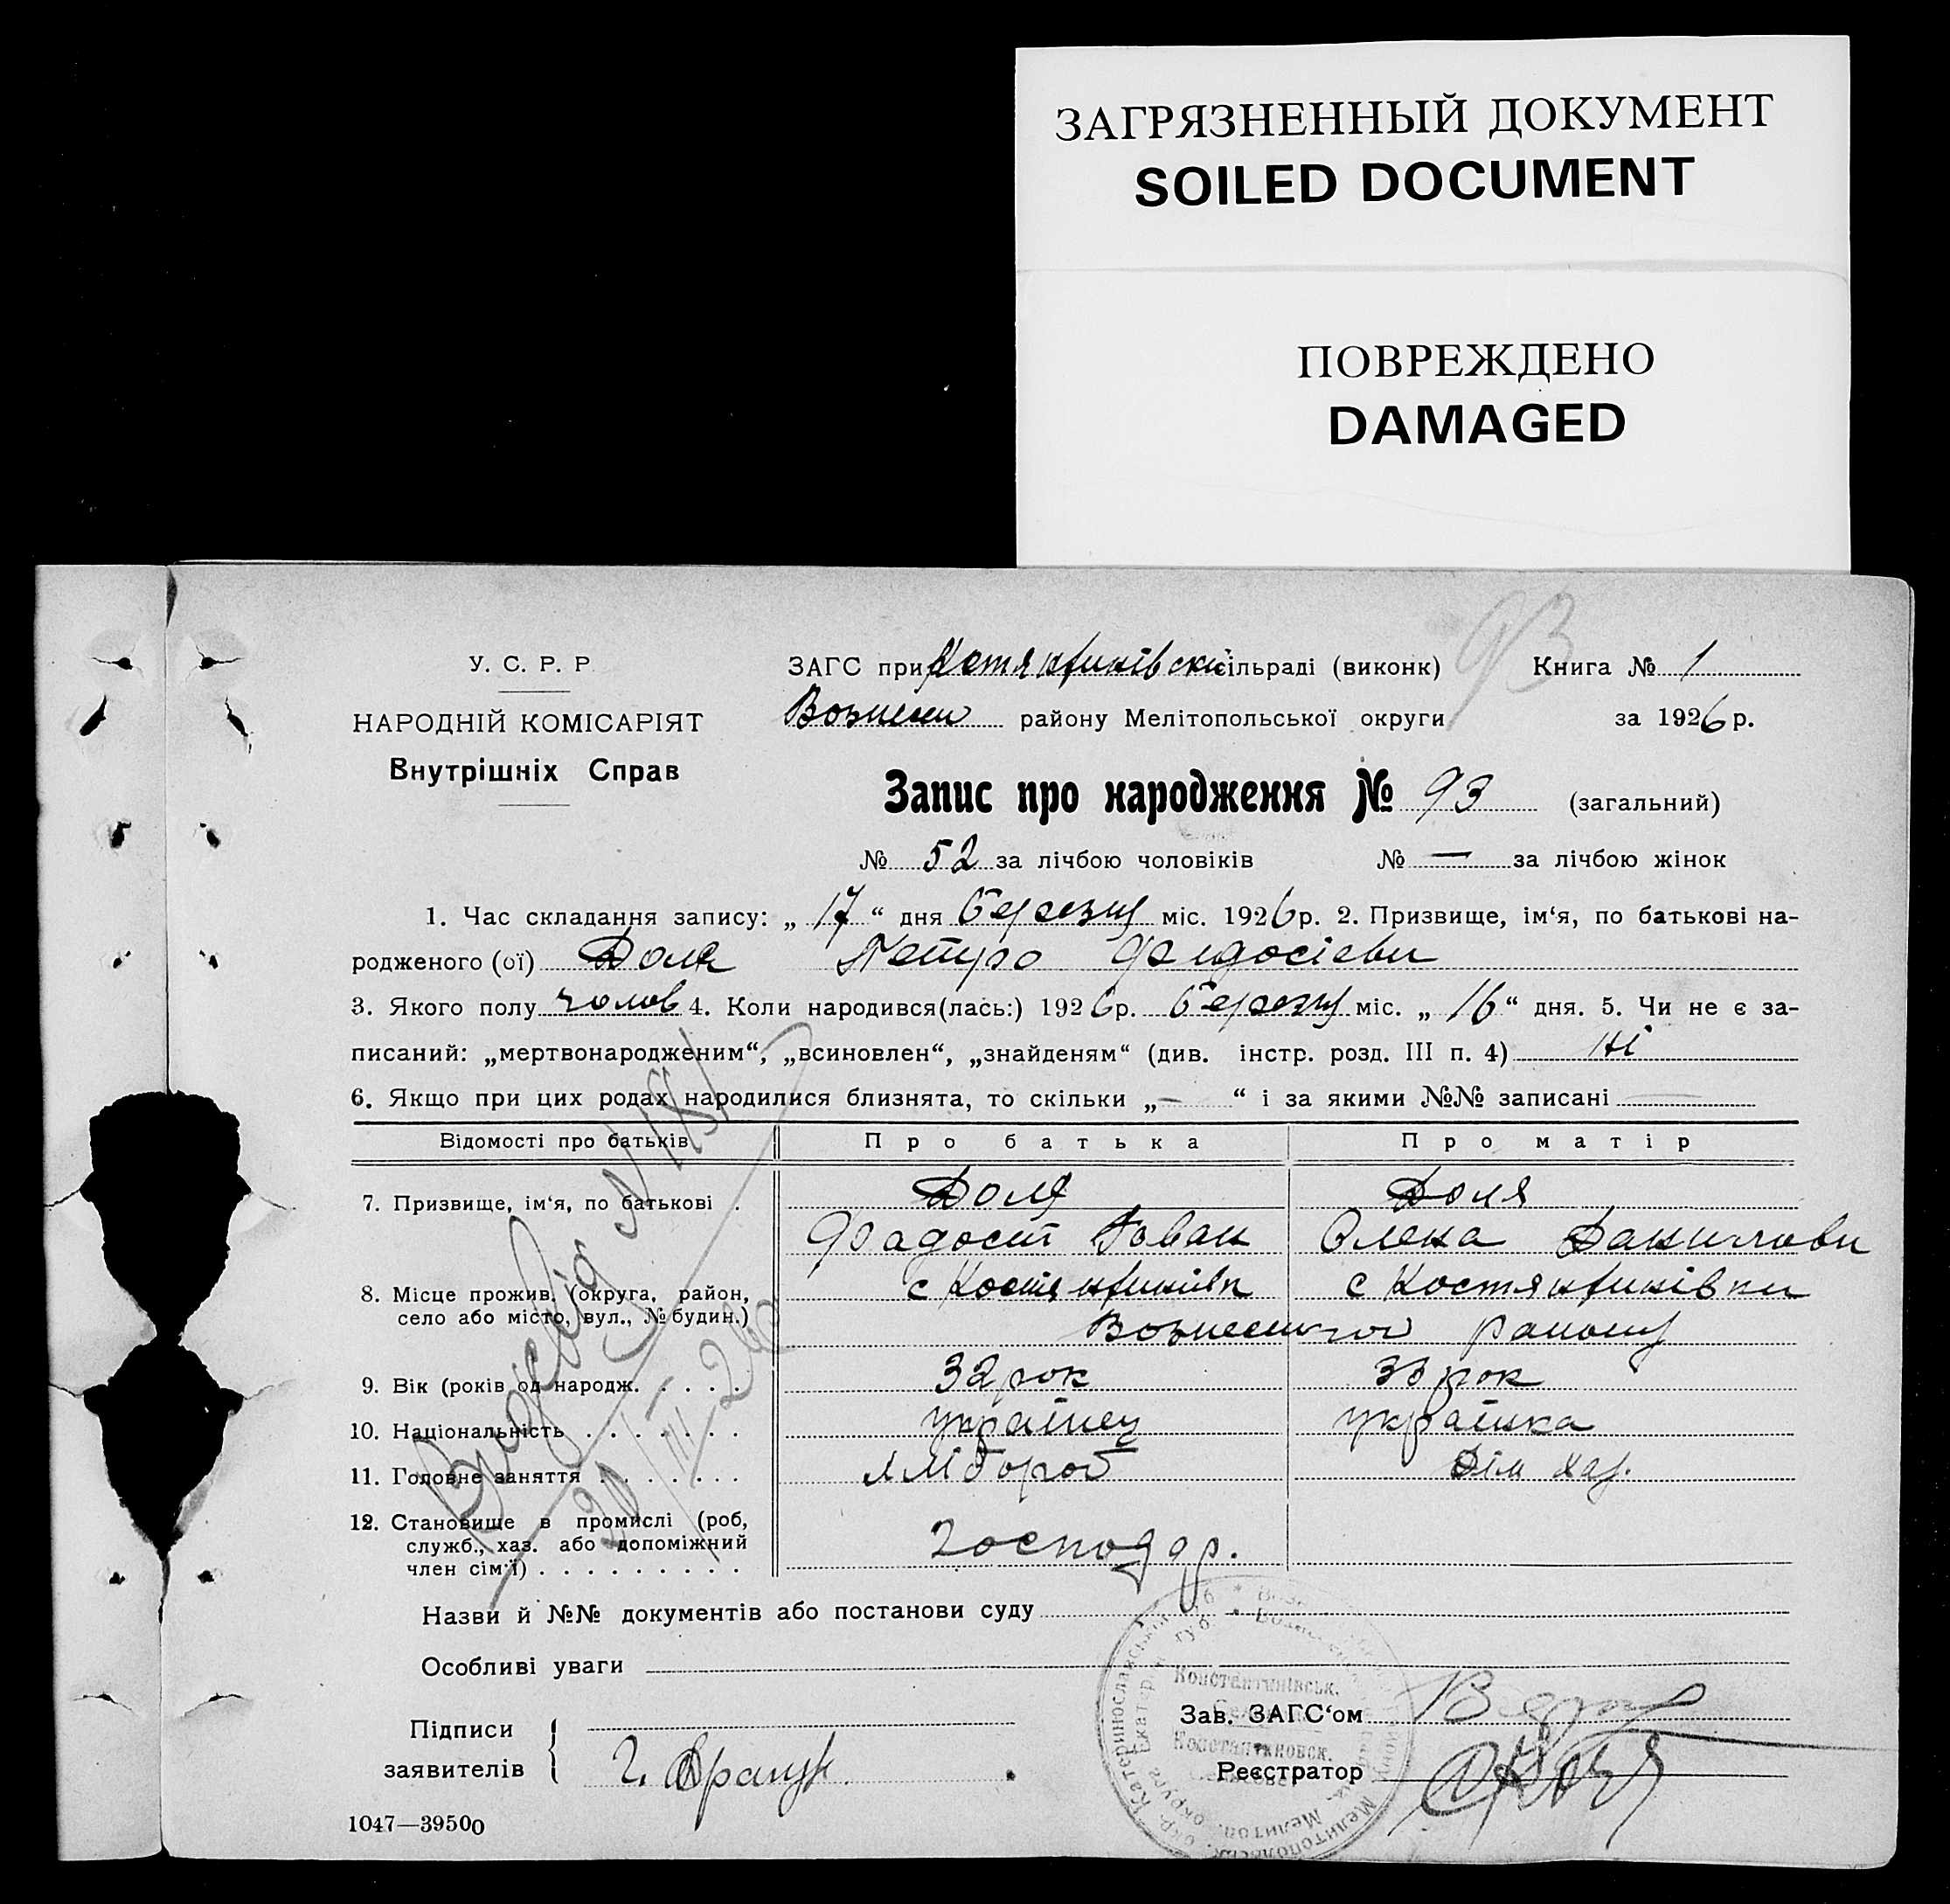 ЗАГРЯЗНЕННЫЙ ДОКУМЕНТ
SOILED DOCUMENT
ПОВРЕЖДЕНО
DAMAGED
93
У. С. Р. Р.
НАРОДНІЙ КОМІСАРІЯТ
Внутрішніх Справ
ЗАГС при Костянтинівські сільраді (виконк) Книга № 1
Вознесен району Мелітопольської округи за 1926 р.
Запис про народження № 93 (загальний)
№ 52 за лічбою чоловіків № — за лічбою жінок
1. Час складання запису: „ 17 “ дня березня міс. 1926 р. 2. Призвище, ім‘я, по батькові на-
родженого (ої) Доля Петро Федосієви
3. Якого полу чолов 4. Коли народився(лась:) 1926 р. березня міс. „ 16 “ дня. 5. Чи не є за-
писаний: „мертвонародженим“, „всиновлен“, „знайденям“ (див. інстр. розд. III п. 4) Ні
6. Якщо при цих родах народилися близнята, то скільки „ — “ і за якими №№ записані —
Відомості про батьків Про батька Про матір
7. Призвище, ім‘я, по батькові . Доля Доля
Федосій Іован Олена Данилови
8. Місце прожив. (округа, район, с Костянтинівк с Костянтинівки
село або місто, вул., № будин.) району
9. Вік (років од народж. . . . . 32 рок 33 рок
10. Національність . . . . . . . українец українка
11. Головне заняття . . . . . . . хлібороб Дім хаз.
12. Становище в промислі (роб,
служб., хаз. або допоміжний господар.
член сім‘ї) . . . . . . . . . .
Видано
20/III 26
Назви й №№ документів або постанови суду
Особливі уваги
Підписи
заявителів
Зав. ЗАГС‘ом
Реєстратор
Константинівськ.
Константиновск.
1047—39500